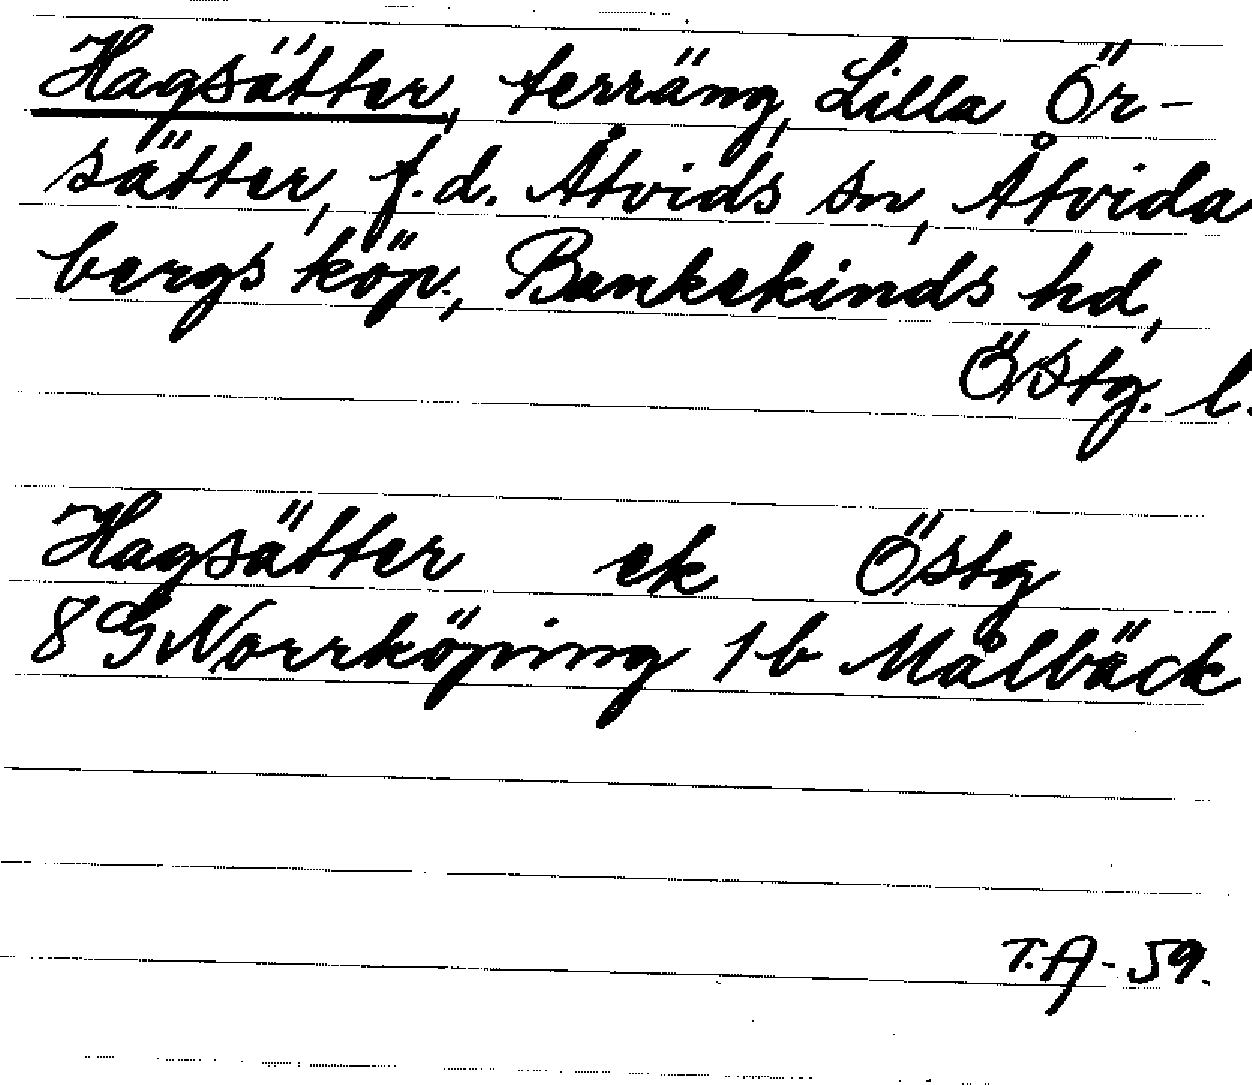 Hagsätter, terräng, Lilla Ör-
sätter, f.d. Åtvids sn, Åtvida
bergs köp., Bankekinds hd,
Östg. l.
Hagsätter ek Östg
8 G Norrköping 1 b Målbäck
T.A-59.